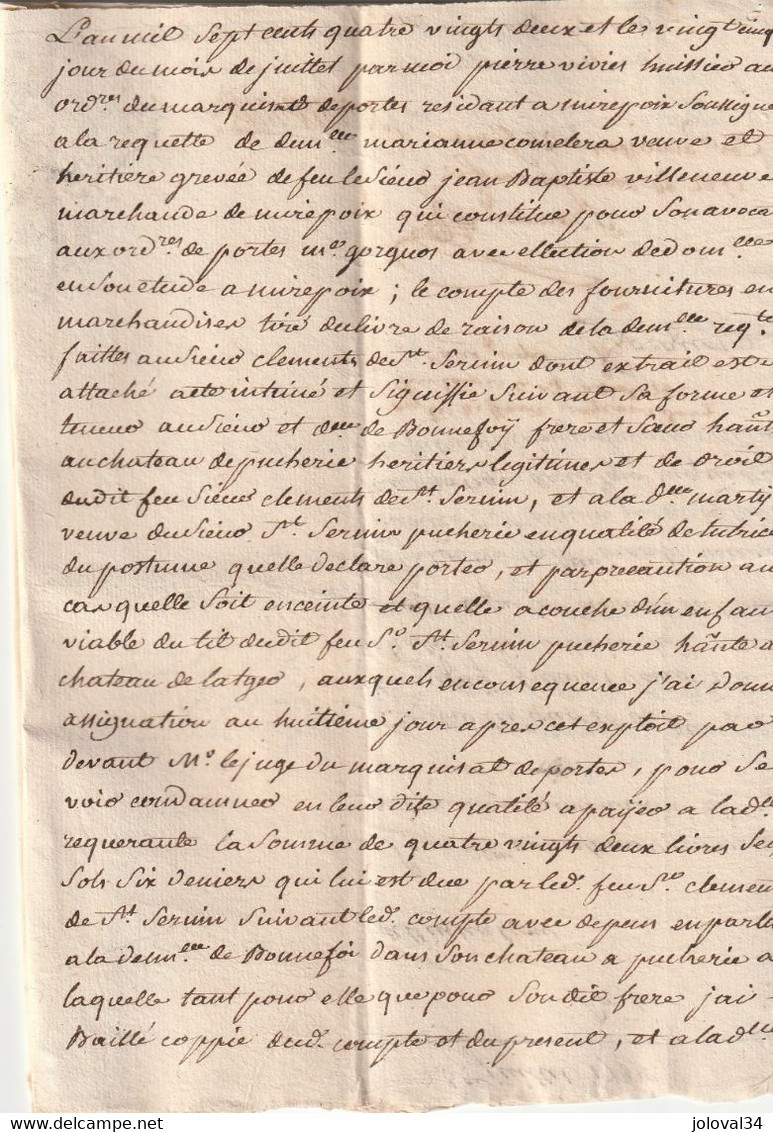 L'an mil sept cents quatre vingts deux et le vingt cinq
jour du mois de juillet par moi pierre vivies huissier au
ord.res du marquisat de portes residant a mirepoix soussigne
a la requette de dem.lle marianne comelera veuve et
heritière grevée de feu le siéur jean Baptiste villeneuve
marchande de mirepoix qui constitue pour son avoca
aux ord.res de portes m.e gorguos avec ellection de dom.lle
en son etude a mirepoix ; le compte des fournitures en
marchandises tiré du livre de raison de la dem.lle req.te
faittes au siéur clements de S.t Sernin dont extrait est
attaché a été intimé et signiffié suivant sa forme et
teneur au siéur et d.lle de Bonnefoÿ frere et sœur hãnt
au chateau de pucherie heritiers legitimes et de droit
dudit feu siéur clements de S.t Sernin, et a la d.lle martÿ
veuve du siéur S.t Sernin pucherie en qualité de tutrice
du postume quelle declare porter, et par precaution au
cas quelle soit enceinte et quelle acouche d'un enfan
viable du tit dudit feu S.r S.t Sernin pucherie hãnte a
chateau de latger, auxquels en consequence j'ai donn
assignation au huitième jour apres cet exploit par
devant M.r le juge du marquisat de portes, pour se
voir condamner en leur dite qualité a païjer a lad.e
requerante la somme de quatre vingts deux livres sep
sols six deniers qui lui est due par led. feu S.r clemen
de S.t Sernin suivant led. compte avec depens en parla
a la dem.lle de Bonnefoi dans son chateau a pucherie a
laquelle tant pour elle que pour son dit frere j'ai -
Baillé coppie dud. compte et du present, et a lad.lle
delcampe.net
joloval34